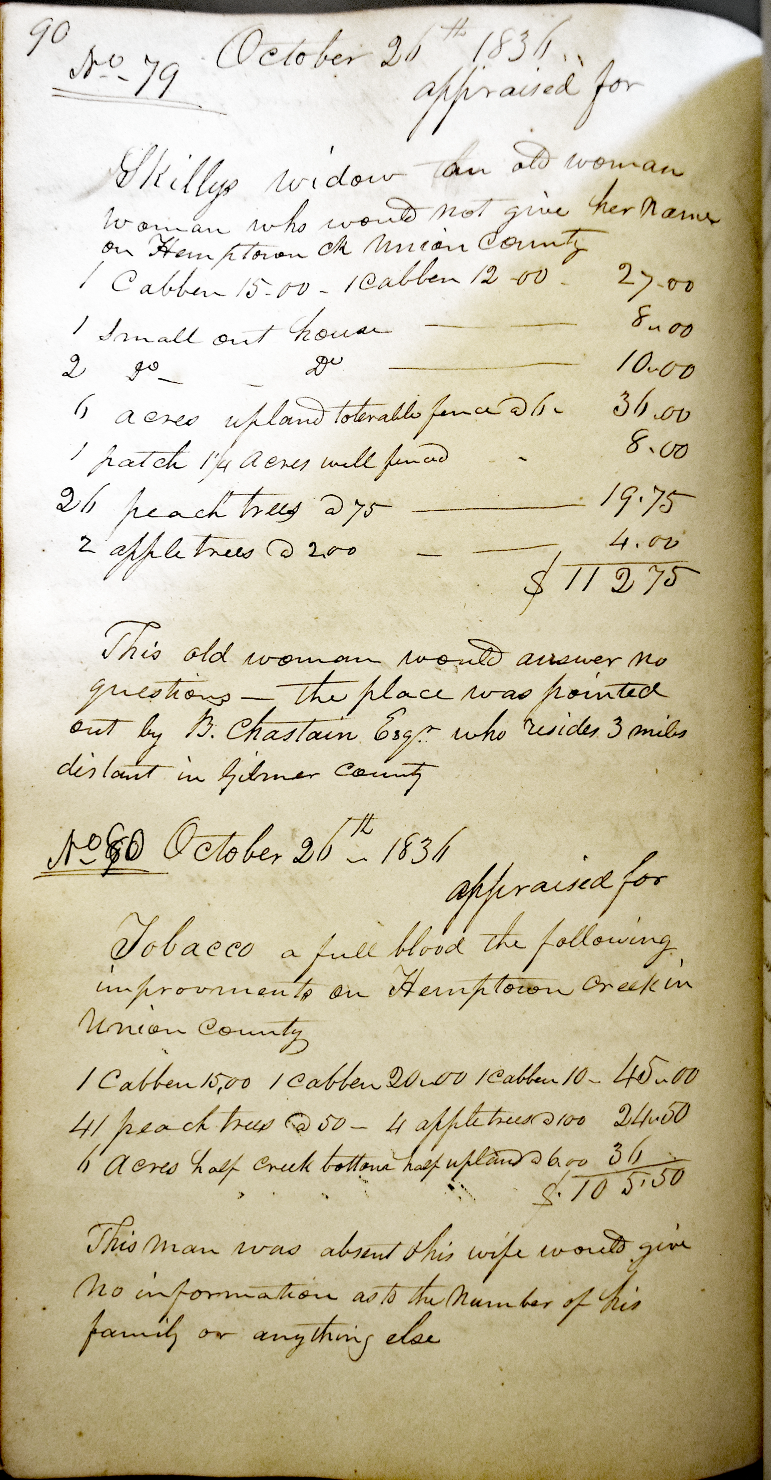 90
No 79 October 26th 1836
appraised for
Skillys widow an old woman
woman who would not give her name
on Hemptown ck Union County
1 Cabben 15-00 - 1 Cabben 12-00 - 27-00
1 Small out house — 8.00
2 Do — Do — 10.00
6 acres upland tolerable fence @ 6 - 36.00
1 patch 1¼ Acres well fenced - 8.00
26 peach trees @ 75 — 19.75
2 apple trees @ 200 — 4.00
$ 112 75
This old woman would answer no
questions — the place was pointed
out by B. Chastain Esqr who resides 3 miles
distant in Gilmer County
No 80 October 26th 1836
appraised for
Tobacco a full blood the following
improvments on Hemptown Creek in
Union County
1 Cabben 15,00 1 Cabben 20.00 1 Cabben 10 - 45.00
41 peach trees @ 50 - 4 apple trees @ 100 24.50
6 Acres half creek bottom half upland @ 6.00 36
$. 105.50
This man was absent & his wife would give
no information as to the number of his
family or anything else